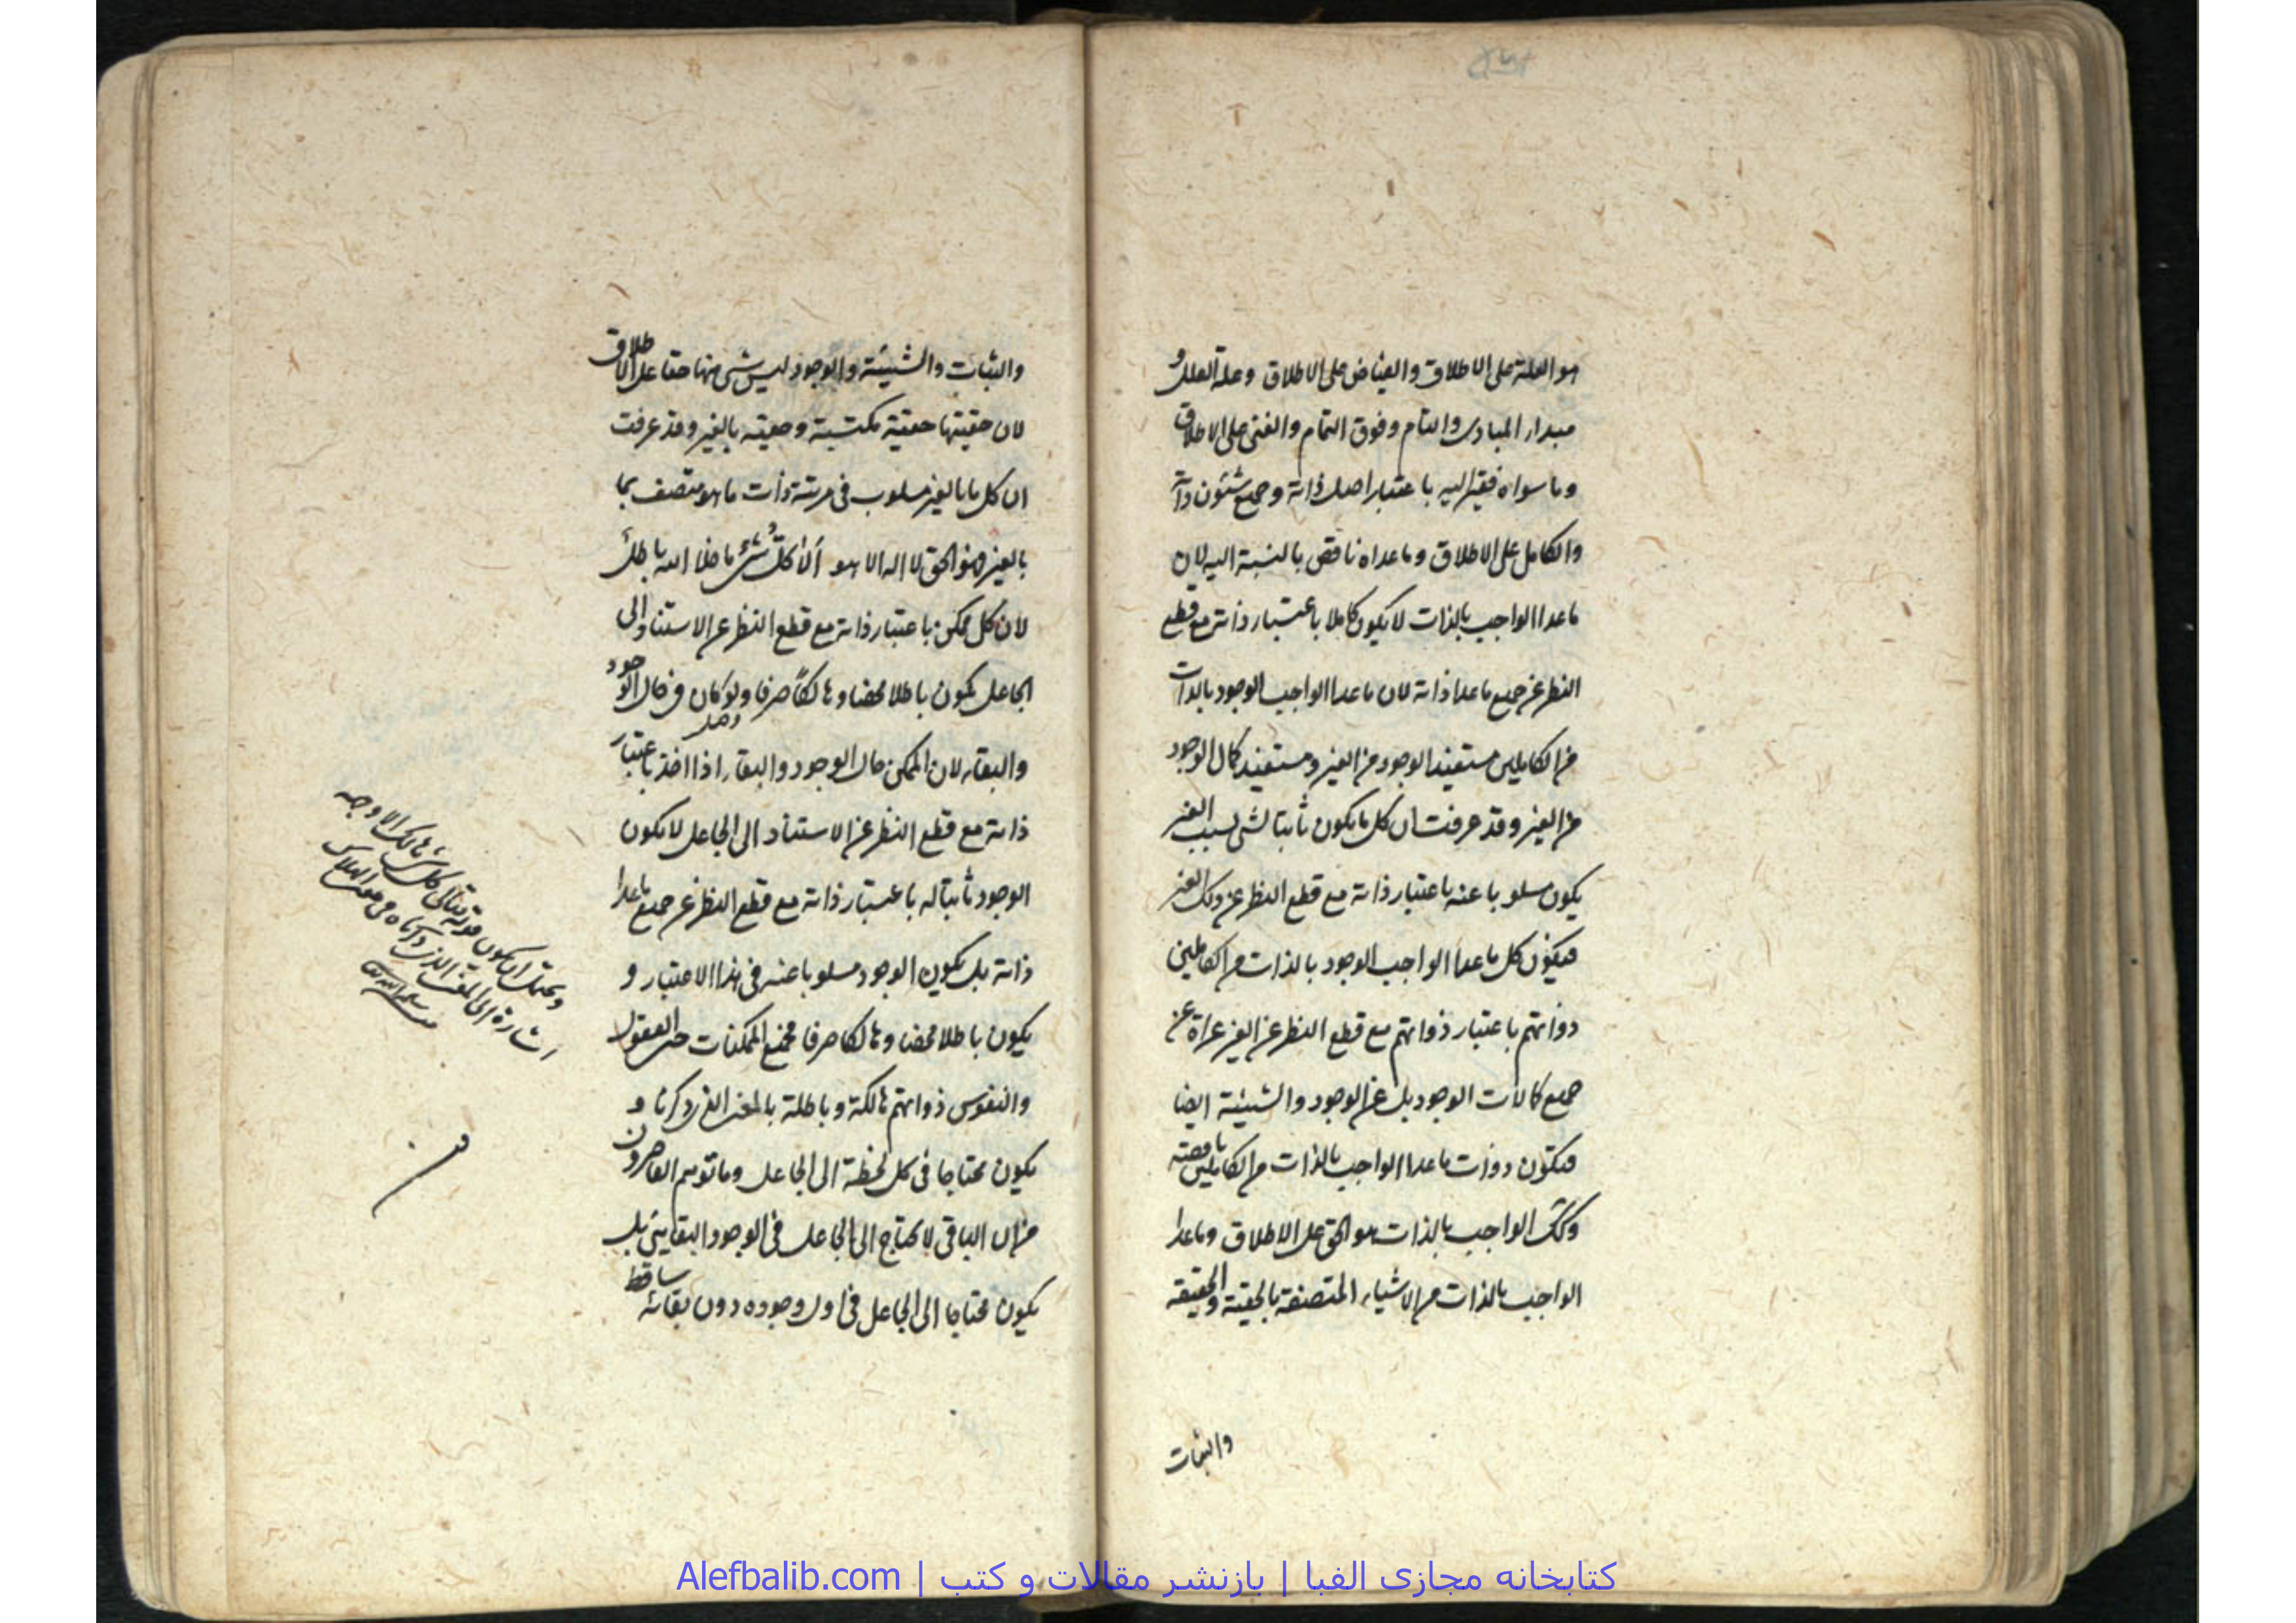 هو العلة على الاطلاق والفياض على الاطلاق وعلة العلل و
مبدأ المبادى والتام وفوق التمام والغنى على الاطلاق
وما سواه فقير اليه باعتبار اصل ذاته وجميع شئون ذاته
والكامل على الاطلاق وما عداه ناقص بالنسبة اليه لان
ما عدا الواجب بالذات لا يكون كاملا باعتبار ذاته مع قطع
النظر عن جميع ما عدا ذاته لان ما عدا الواجب الوجود بالذات
من الكاملين مستفيد الوجود من الغير ومستفيد كمال الوجود
من الغير وقد عرفت ان كل ما يكون ثابتا لشى بسبب الغير
يكون مسلوبا عنه باعتبار ذاته مع قطع النظر عن ذلك الغير
فيكون كل ما عدا الواجب الوجود بالذات من الكاملين
ذواتهم باعتبار ذواتهم مع قطع النظر عن الغير عراة عن
جميع كمالات الوجود بل عن الوجود والشيئية ايضا
فيكون ذوات ما عدا الواجب بالذات من الكاملين ناقصة
وكك الواجب بالذات هو الحق على الاطلاق وما عدا
الواجب بالذات من الاشياء المتصفة بالحقية والحقيقة
والثبات
والثبات والشيئية والوجود ليس شى منها حقا على الاطلاق
لان حقيتها حقية مكتسبة وحقيته بالغير وقد عرفت
ان كل ما بالغير مسلوب فى مرتبة ذات ما هو متصف بما
بالغير وهو الحق لا اله الا هو ألا كلُّ شئ ما خلا الله باطل
لان كل ممكن باعتبار ذاته مع قطع النظر عن الاستناد الى
الجاعل يكون باطلا محضا وهالكاً صرفا ولو كان فى حال الوجود
والبقاء لان الممكن حال الوجود والبقاء اذا اخذ باعتبار
ذاته مع قطع النظر عن الاستناد الى الجاعل لا يكون
الوجود ثابتا له باعتبار ذاته مع قطع النظر عن جميع ما عدا
ذاته بل يكون الوجود مسلوبا عنه فى هذا الاعتبار و
يكون باطلا محضا وهالكا صرفا فجميع الممكنات حتى العقول
والنفوس ذواتهم هالكة وباطلة بالمعنى الذى ذكرنا و
يكون محتاجا فى كل لحظة الى الجاعل وما توهم القاصرون
من ان الباقى لا يحتاج الى الجاعل فى الوجود البقايى بل
يكون محتاجا الى الجاعل فى اول وجوده دون بقائه ساقط
ويحتمل ان يكون قوله تعالى كل شئ هالك الا وجهه
اشارة الى المعنى الذى ذكرناه من معنى الهلاك
منه سلمه الله تعالى
کتابخانه مجازی الفبا | بازنشر مقالات و کتب | Alefbalib.com